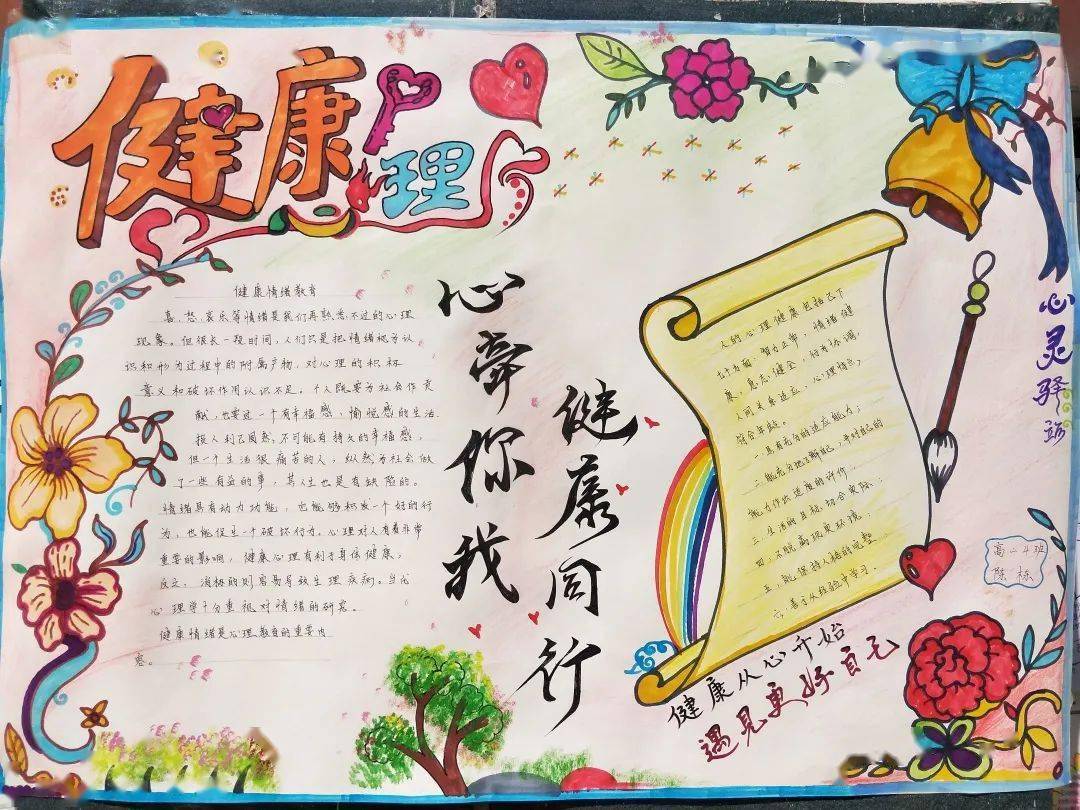 健康
理
健康情绪教育
喜、怒、哀乐等情绪是我们再熟悉不过的心理
现象。但很长一段时间，人们只是把情绪视为认
识和形为过程中的附属产物，对心理的积极
意义和破坏作用认识不足。个人既要为社会作贡
献，也要过一个有幸福感，愉悦感的生活
损人利己固然不可能有持久的幸福感，
但一个生活很痛苦的人，纵然为社会做
了一些有益的事，其人生也是有缺陷的。
情绪具有动力功能，也能够积发一个好的行
为，也能促生一个破坏行为。心理对人有着非常
重要的影响，健康心理有利于身体健康；
反之，消极的则容易导致生理疾病。当代
心理学十分重视对情绪的研究。
健康情绪是心理教育的重要内
容。
心牵你我
健康同行
人的心理健康包括已下
七个方面：智力正常，情绪健
康，意志健全，行为协调，
人间关系适应，心理特点
符合年龄。
一.具有充分的适应能力；
二.能充分地了解自己，并对自己的
能力作出适度的评价；
三.生活的目标切合实际；
四.不脱离现实环境；
五.能保持人格的完整
六.善于从经验中学习.
健康从心开始
遇见更好自己
心灵驿站
高二4班
陈栋